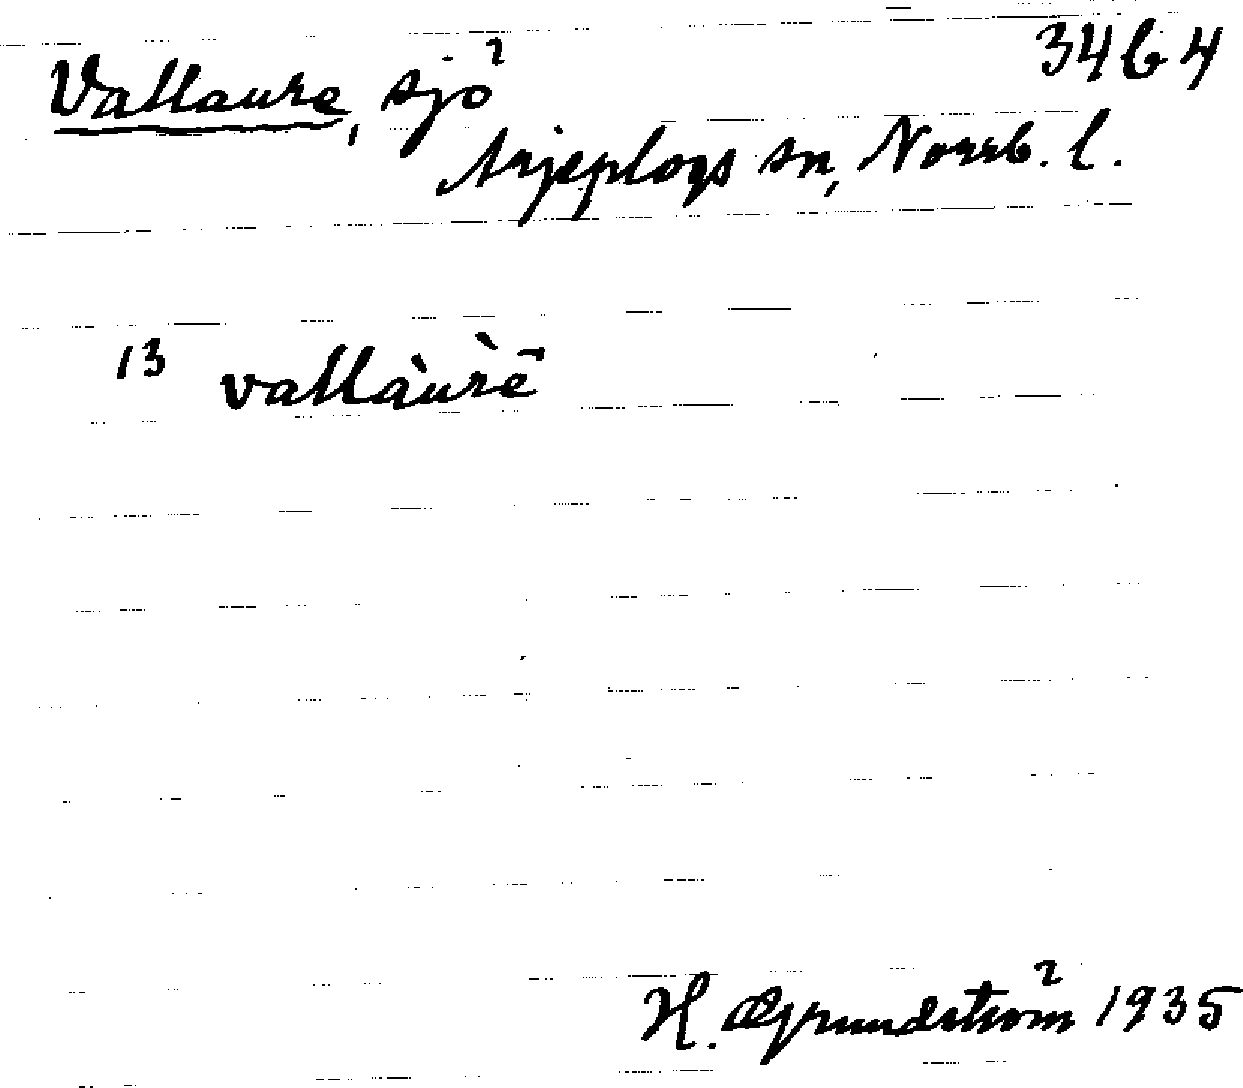 Vallaure, sjö 3464
Arjeplogs sn, Norrb. l.
13 vallàùrē
H. Grundström 1935